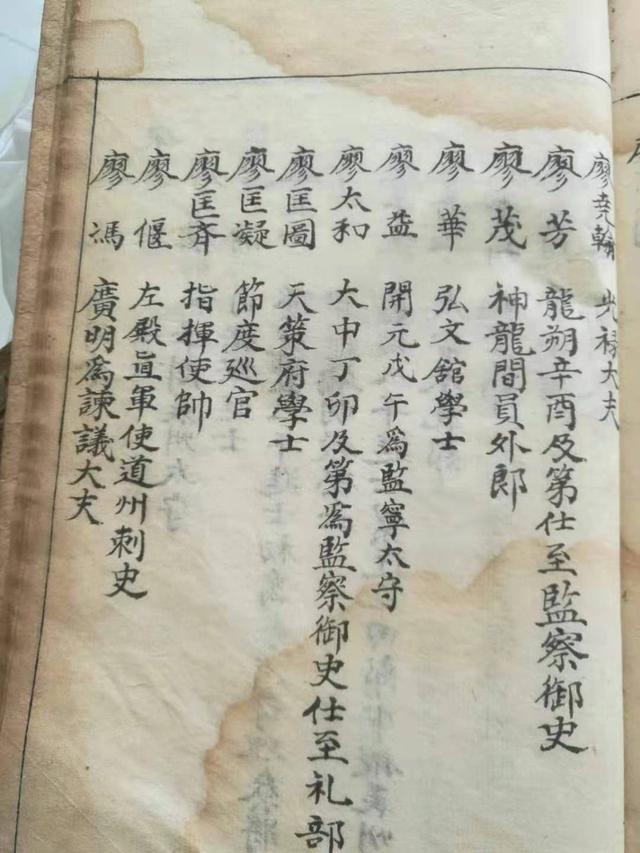 廖堯翰 光禄大夫
廖芳 龍朔辛酉及第仕至監察御史
廖茂 神龍間員外郎
廖華 弘文舘學士
廖益 開元戊午為監寧太守
廖太和 大中丁卯及第為監察御史仕至礼部
廖匡圖 天策府學士
廖匡凝 節度廵官
廖匡齐 指揮使帥
廖偃 左殿直軍使道州刺史
廖馮 廣明為諫議大夫